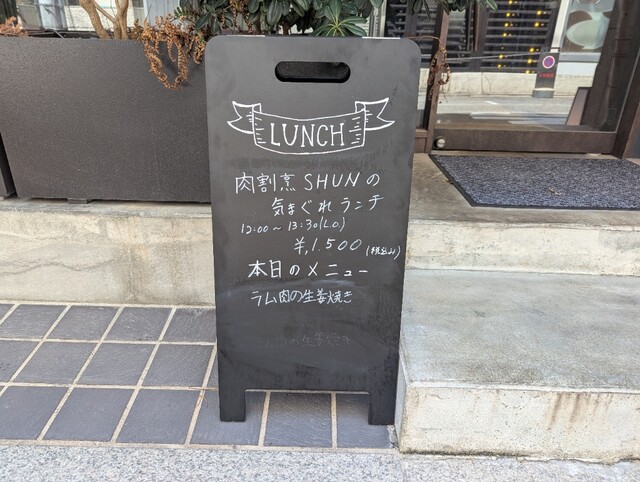 LUNCH
肉割烹 SHUNの
気まぐれランチ
12:00〜13:30(L.O.)
¥1,500 (税込み)
本日のメニュー
ラム肉の生姜焼き
の生姜焼き